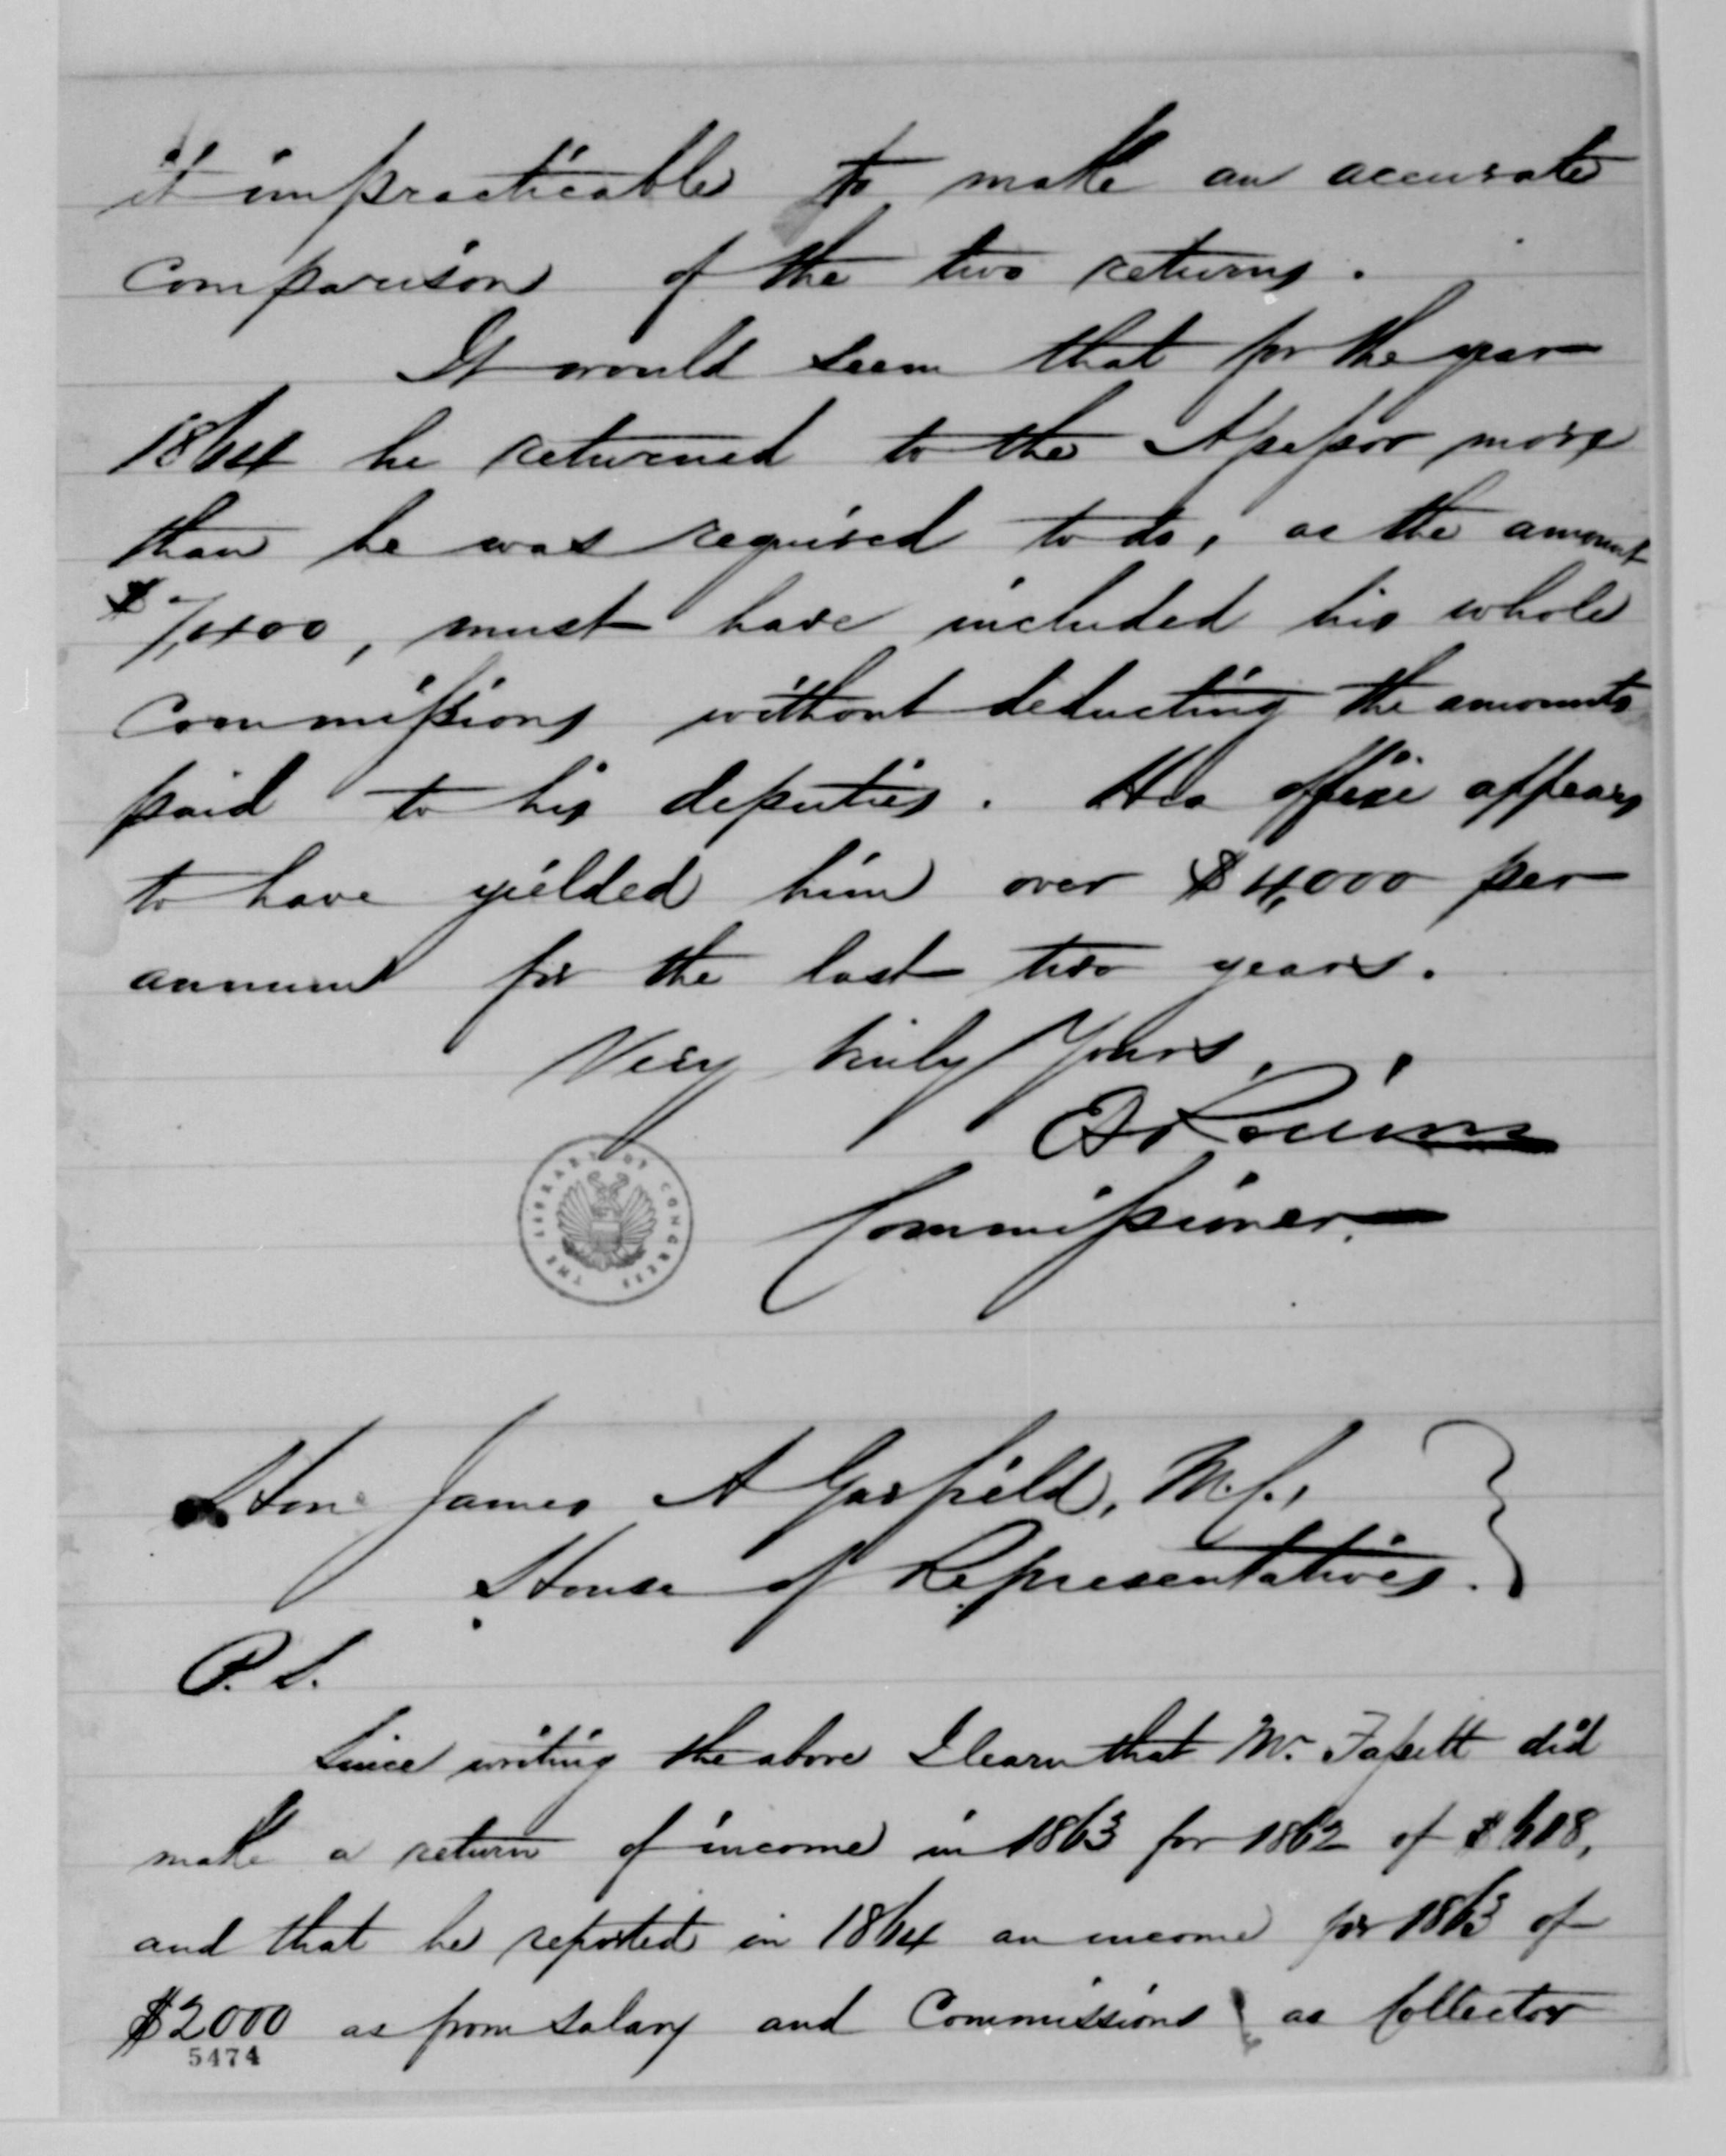 it impracticable to make an accurate
comparison of the two returns.
It would seem that for the year
1864 he returned to the Assessor more
than he was required to do, as the amount
$7,400, must have included his whole
commissions without deducting the amounts
paid to his deputies. His office appears
to have yielded him over $4,000 per
annum for the last two years.
Very truly Yours,
E A Rollins
Commissioner.
THE LIBRARY OF CONGRESS
Hon James A Garfield, M.C.,
House of Representatives.
P.S.
Since writing the above I learn that Mr. Fassett did
make a return of income in 1863 for 1862 of $618,
and that he reported in 1864 an income for 1863 of
$2000 as from salary and Commissions as Collector
5474